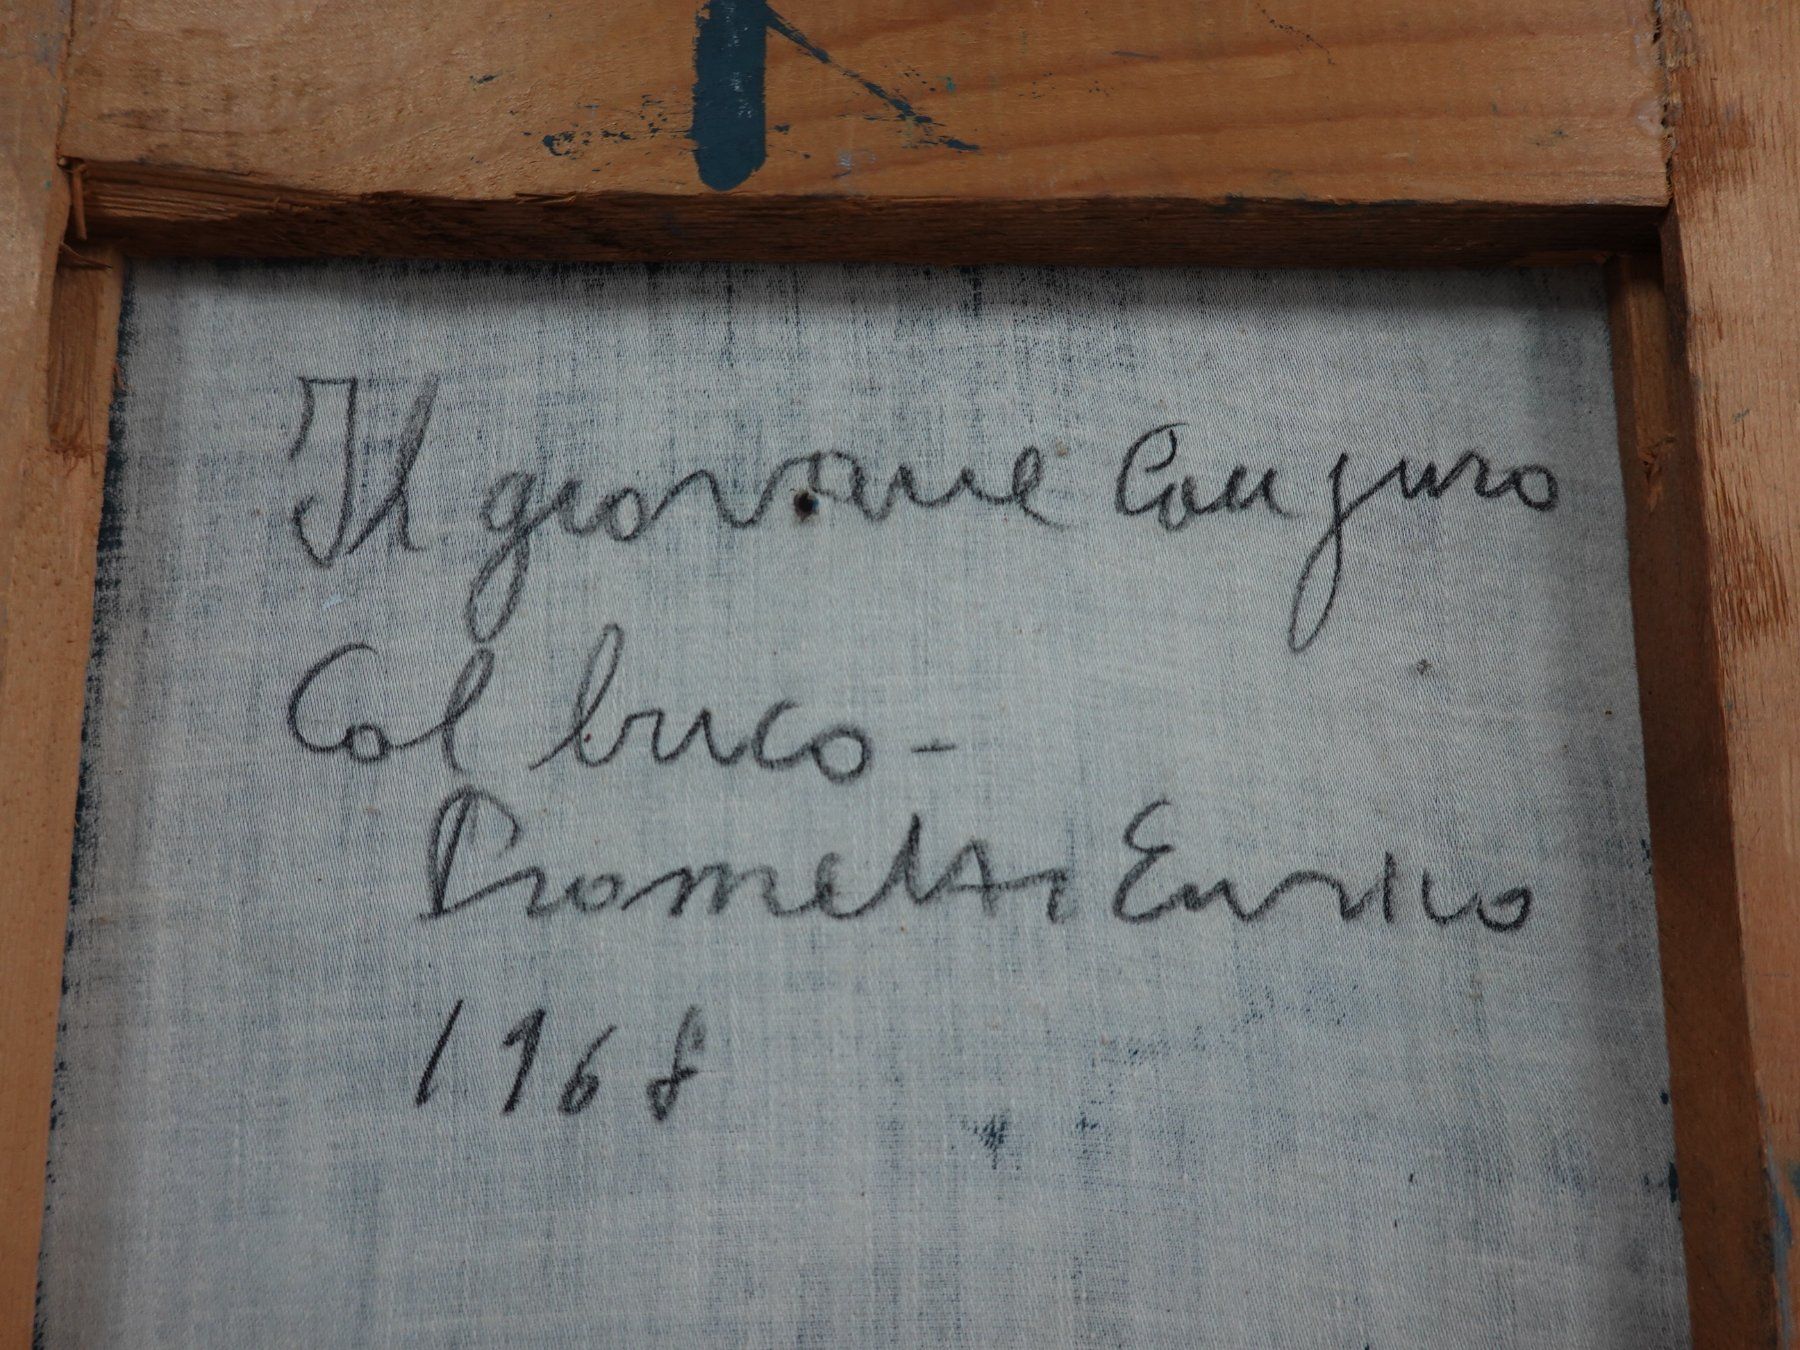 Il giovane Canguro
Col buco -
Prometti Enrico
1968